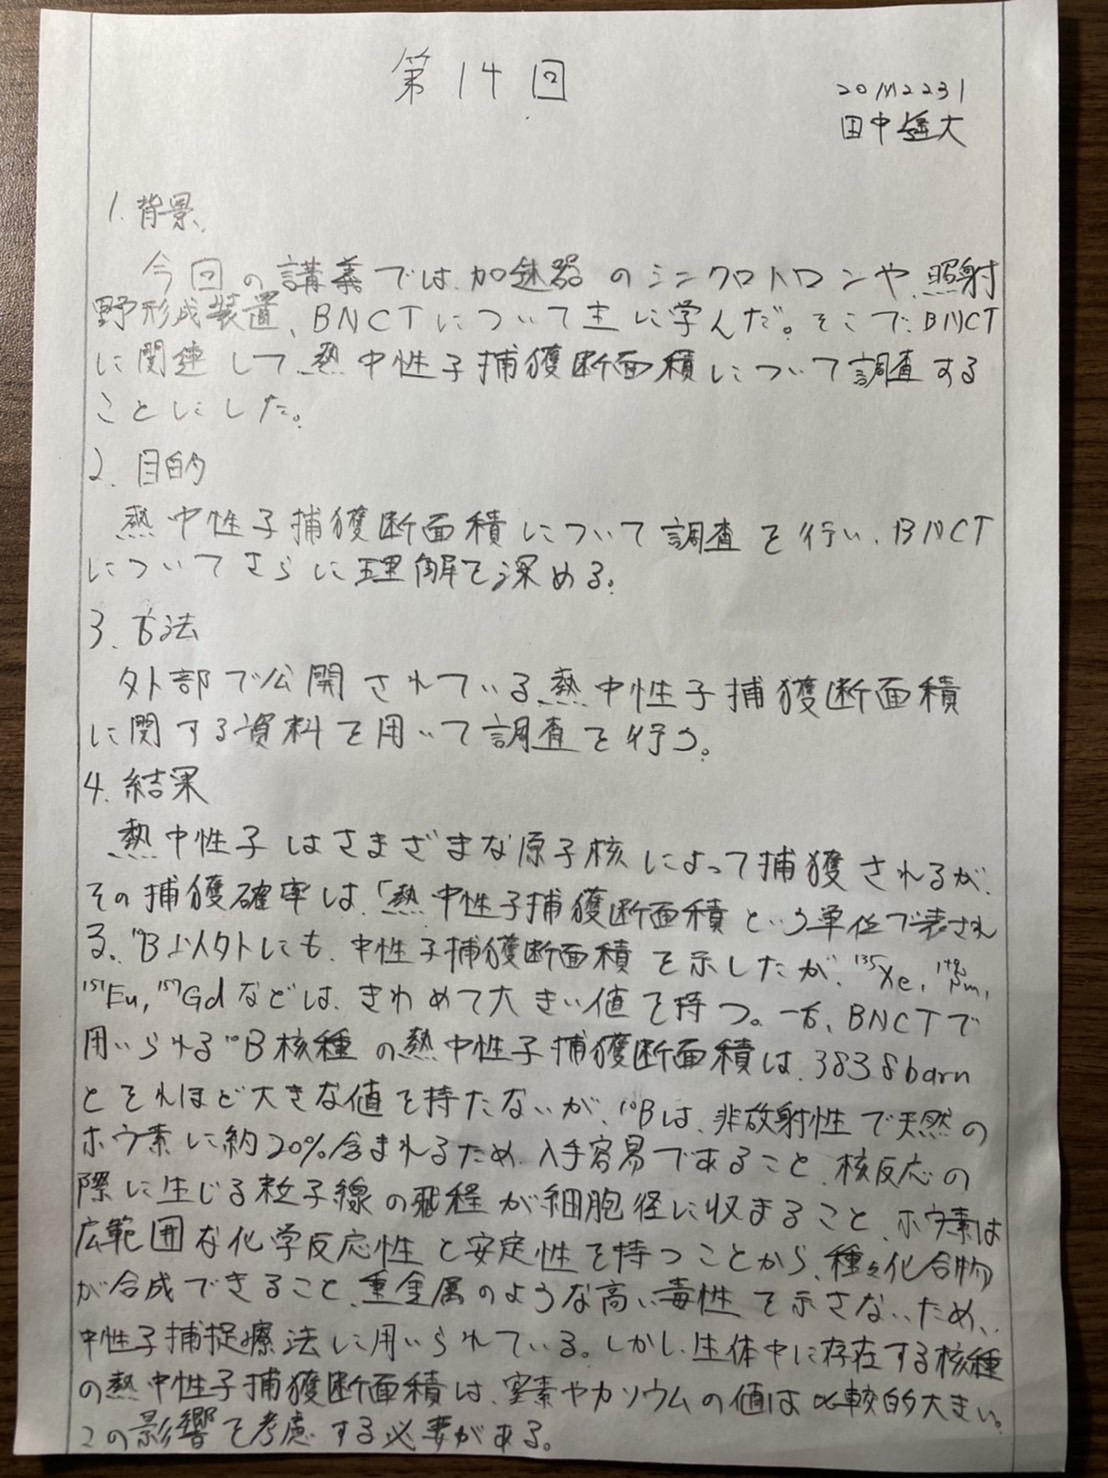 第14回
20M2231
田中 大
1. 背景
今回の講義では、加速器のシンクロトロンや、照射
野形成装置、BNCTについて主に学んだ。そこで、BNCT
に関連して、熱中性子捕獲断面積について調査する
ことにした。
2. 目的
熱中性子捕獲断面積について調査を行い、BNCT
についてさらに理解を深める。
3. 方法
外部で公開されている熱中性子捕獲断面積
に関する資料を用いて調査を行う。
4. 結果
熱中性子はさまざまな原子核によって捕獲されるが、
その捕獲確率は、「熱中性子捕獲断面積という単位で表され
る。¹⁰B以外にも、中性子捕獲断面積を示したが、¹³⁵Xe, ¹⁴⁹Sm,
¹⁵¹Eu, ¹⁵⁷Gdなどは、きわめて大きい値を持つ。一方、BNCTで
用いられる¹⁰B核種の熱中性子捕獲断面積は、3838barn
とそれほど大きな値を持たないが、¹⁰Bは、非放射性で天然の
ホウ素に約20%含まれるため、入手容易であること、核反応の
際に生じる粒子線の飛程が細胞径に収まること、ホウ素は
広範囲な化学反応性と安定性を持つことから、種々化合物
が合成できること、重金属のような高い毒性を示さないため、
中性子捕捉療法に用いられている。しかし、生体中に存在する核種
の熱中性子捕獲断面積は、窒素やカリウムの値は比較的大きい。
この影響を考慮する必要がある。